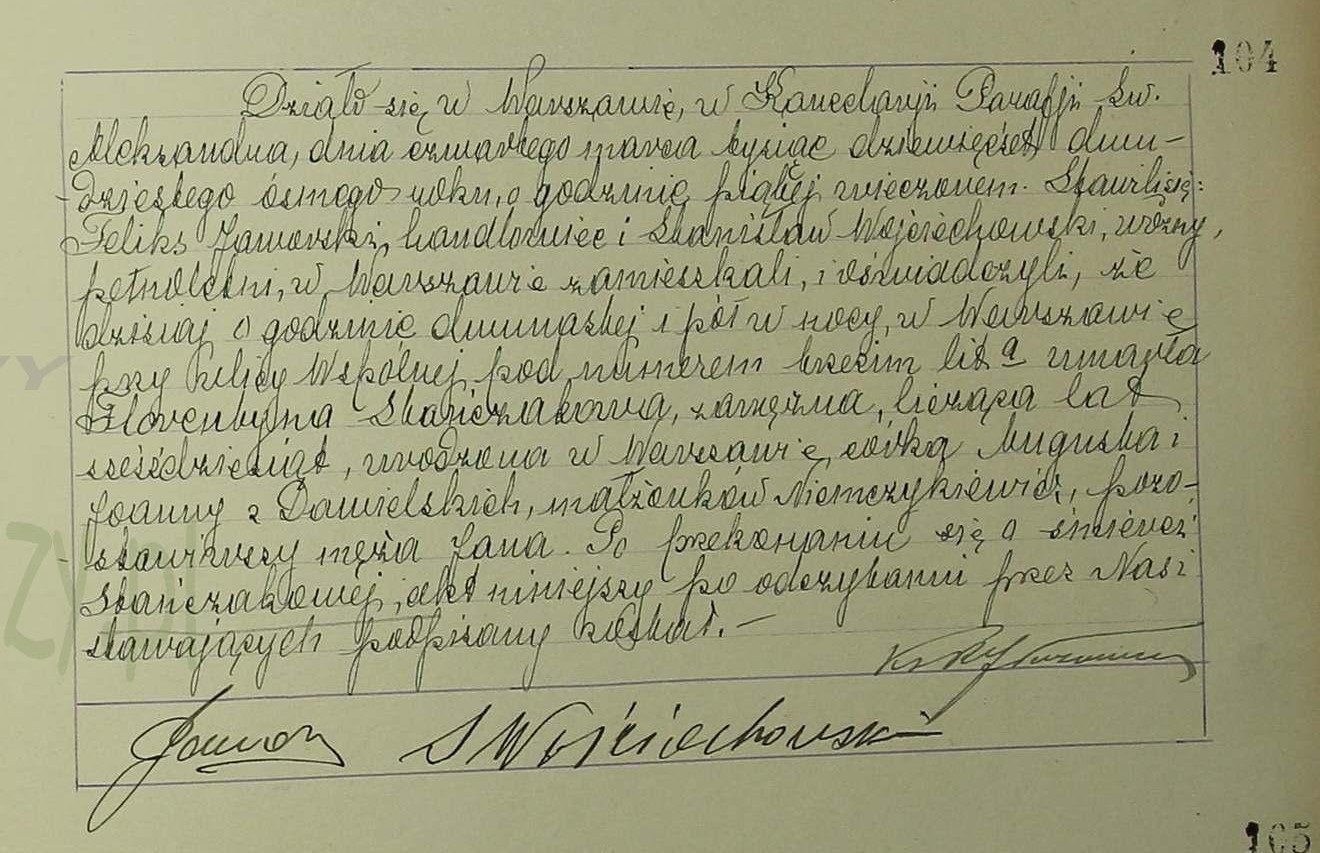 104
Działo się, w Warszawie, w Kancelaryji Parafji św.
Aleksandra, dnia czwartego marca tysiąc dziewięćset dwu-
dziestego ósmego roku, o godzinie piątej wieczorem. Stawili się:
Feliks Jaworski, handlowiec i Stanisław Wojciechowski, woźny,
pełnoletni, w Warszawie zamieszkali, i oświadczyli, że
dzisiaj o godzinie dwunastej i pół w nocy, w Warszawie
przy ulicy Wspólnej pod numerem trzecim lit a umarła
Florentyna Stańczakowa, zamężna, licząca lat
sześćdziesiąt, urodzona w Warszawie, córka Augusta i
Joanny z Danielskich, małżonków Niemczykiewicz, pozo-
stawiwszy męża Jana. Po przekonaniu się o śmierci
Stańczakowej, akt niniejszy po odczytaniu przez Nas i
stawających podpisany został. —
S Wojciechowski
105